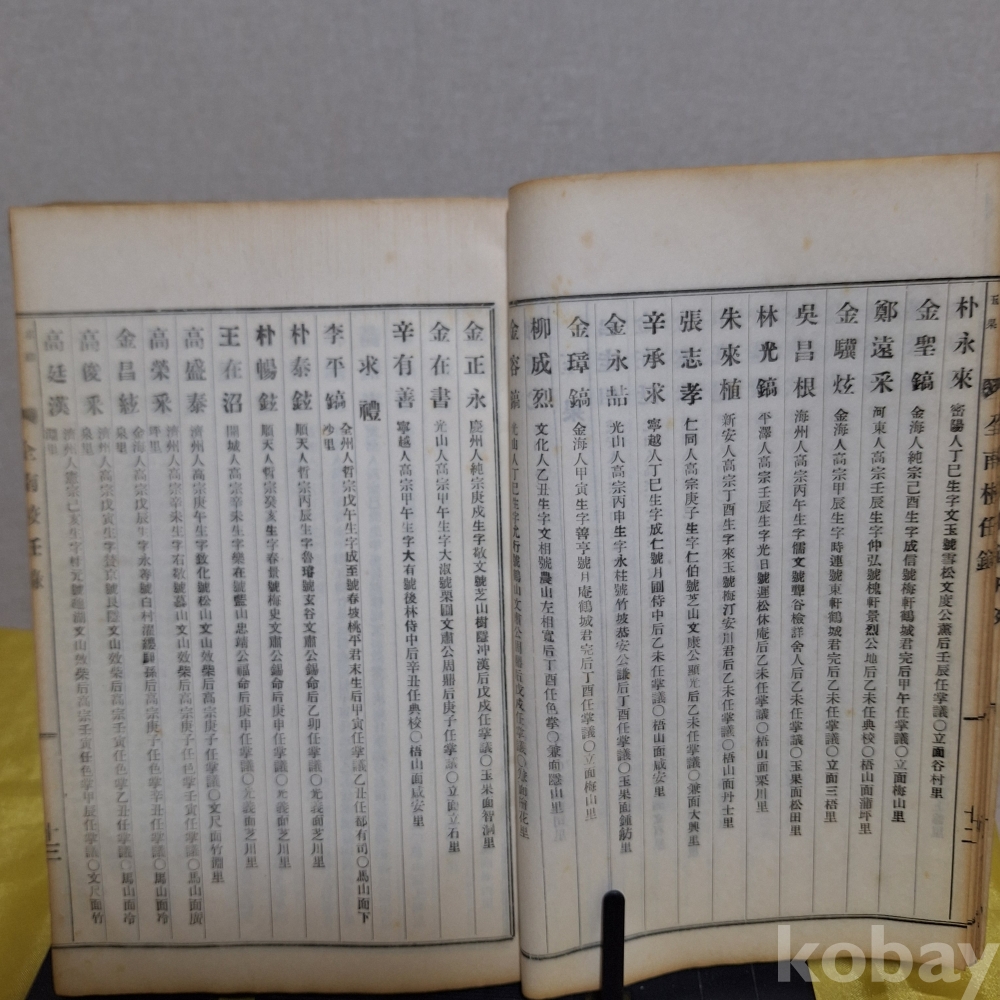 朴永來 密陽人丁巳生字文玉號雪松文度公薰后壬辰任掌議〇立面谷村里
金聖鎬 金海人純宗己酉生字成信號梅軒鶴城君完后甲午任掌議〇立面梅山里
鄭遠采 河東人高宗壬辰生字仲弘號槐軒景烈公地后乙未任典校〇梧山面蒲坪里
金驥炫 金海人高宗甲辰生字時運號東軒鶴城君完后乙未任掌議〇立面三梧里
吳昌根 海州人高宗丙午生字儒文號 谷檢詳舍人后乙未任掌議〇玉果面松田里
林光鎬 平澤人高宗壬辰生字光日號遲松休庵后乙未任掌議〇梧山面栗川里
朱來植 新安人高宗丁酉生字來玉號梅汀安川君后乙未任掌議〇梧山面丹士里
張志孝 仁同人高宗庚子生字仁伯號芝山文康公顯光后乙未任掌議〇兼面大興里
辛承求 寧越人丁巳生字成仁號月圃侍中后乙未任掌議〇梧山面咸安里
金永喆 光山人高宗丙申生字永柱號竹坡恭安公謙后丁酉任掌議〇玉果面 舫里
金璋鎬 金海人甲寅生字善亨號月庵鶴城君完后丁酉任掌議〇立面梅山里
柳成烈 文化人乙丑生字文相號農山左相寬后丁酉任色掌〇兼面 山里
金容鎬 光山人丁巳生字
金正永 慶州人純宗庚戌生字敬文號芝山樹隱冲漢后戊戌任掌議〇玉果面智洞里
金在書 光山人高宗甲午生字大淑號栗圃文肅公周鼎后庚子任掌議〇立面立石里
辛有善 寧越人高宗甲午生字大有號後林侍中后辛丑任典校〇梧山面咸安里
求禮
李平鎬 全州人哲宗戊午生字成至號春坡桃平君末生后甲寅任掌議乙丑任都有司〇馬山面下沙里
朴泰鉉 順天人哲宗丙辰生字魯璿號玄谷文肅公錫命后乙卯任掌議〇光義面芝川里
朴暢鉉 順天人哲宗癸亥生字春景號梅史文肅公錫命后庚申任掌議〇光義面芝川里
王在沼 開城人高宗辛未生字樂在號藍山忠靖公福命后庚申任掌議〇文尺面竹淵里
高盛泰 濟州人高宗庚午生字致化號松山文山效柴后高宗庚子任掌議〇馬山面廣坪里
高榮采 濟州人高宗辛未生字石敬號慕山文山效柴后高宗庚子任色掌壬寅任掌議〇馬山面冷泉里
金昌鉉 金海人高宗戊辰生字永壽號白村濯纓馹孫后高宗庚子任色掌辛丑任掌議〇馬山面冷泉里
高俊采
高廷漢
十二
十三
kobay